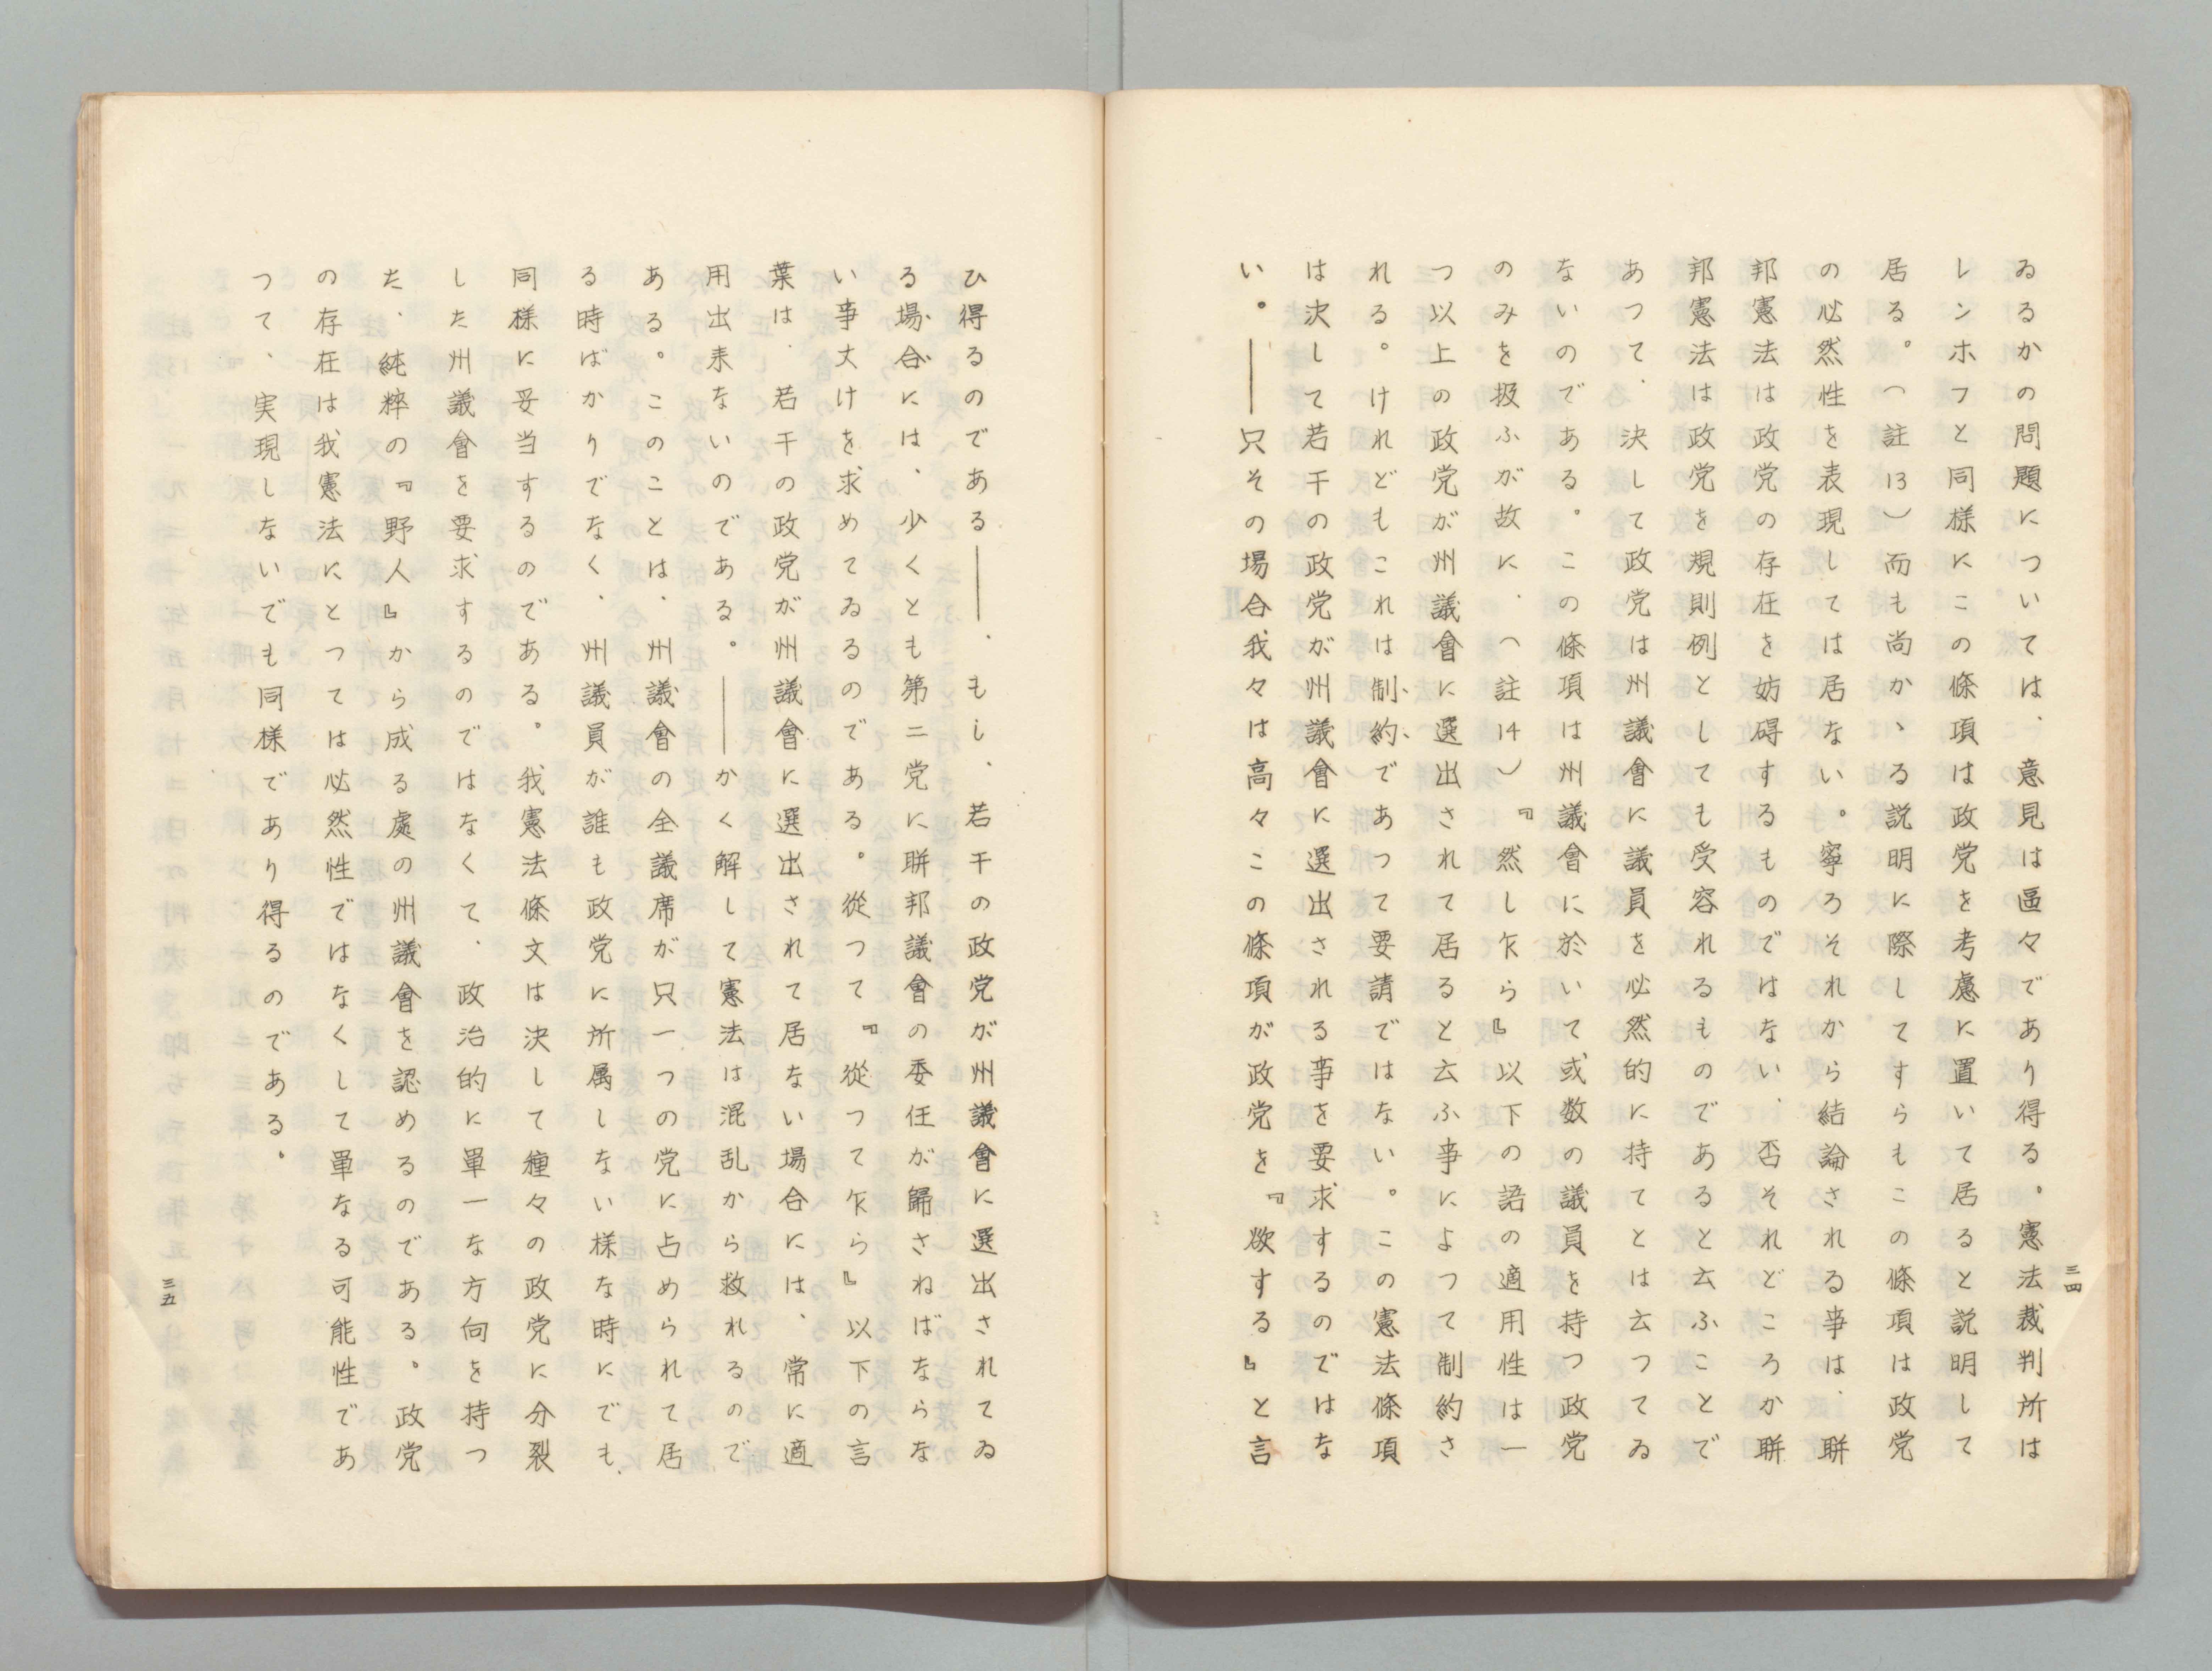 三四
ゐるかの問題については、意見は區々であり得る。憲法裁判所は
レンホフと同様にこの條項は政党を考慮に置いて居ると説明して
居る。（註13）而も尚かゝる説明に際してすらもこの條項は政党
の必然性を表現しては居ない。寧ろそれから結論される事は、聯
邦憲法は政党の存在を妨碍するものではない、否それどころか聯
邦憲法は政党を規則例としても受容れるものであると云ふことで
あつて、決して政党は州議會に議員を必然的に持てとは云つてゐ
ないのである。この條項は州議會に於いて或数の議員を持つ政党
のみを扱ふが故に、（註14）『然し乍ら』以下の語の適用性は一
つ以上の政党が州議會に選出されて居ると云ふ事によつて制約さ
れる。けれどもこれは制約であつて要請ではない。この憲法條項
は決して若干の政党が州議會に選出される事を要求するのではな
い。――只その場合我々は高々この條項が政党を『欲する』と言
ひ得るのである――、もし、若干の政党が州議會に選出されてゐ
る場合には、少くとも第二党に聯邦議會の委任が歸さねばならな
い事丈けを求めてゐるのである。從つて『從つて乍ら』以下の言
葉は、若干の政党が州議會に選出されて居ない場合には、常に適
用出来ないのである。――かく解して憲法は混乱から救れるので
ある。このことは、州議會の全議席が只一つの党に占められて居
る時ばかりでなく、州議員が誰も政党に所属しない様な時にでも、
同様に妥当するのである。我憲法條文は決して種々の政党に分裂
した州議會を要求するのではなくて、政治的に單一な方向を持つ
た、純粹の『野人』から成る處の州議會を認めるのである。政党
の存在は我憲法にとつては必然性ではなくして單なる可能性であ
つて、実現しないでも同様であり得るのである。
三五